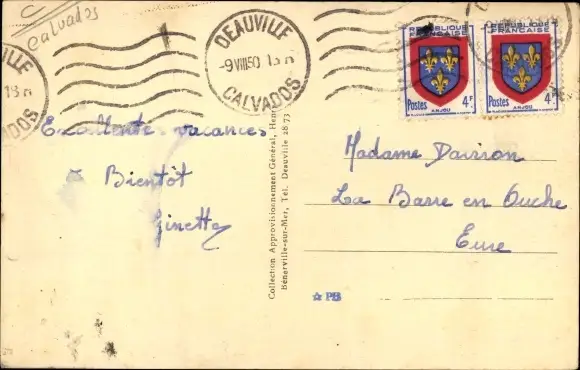 C
Calvados
DEAUVILLE
-9 VIII 50 13 H
CALVADOS
REPUBLIQUE FRANÇAISE
Postes 4F
ANJOU
REPUBLIQUE FRANÇAISE
Postes 4F
ANJOU
Excellentes vacances
à Bientôt
Ginette
Collection Approvisionnement Général,
Bénerville-sur-Mer, Tél. Deauville 28 73
Madame
La Barre en Ouche
Eure
PB